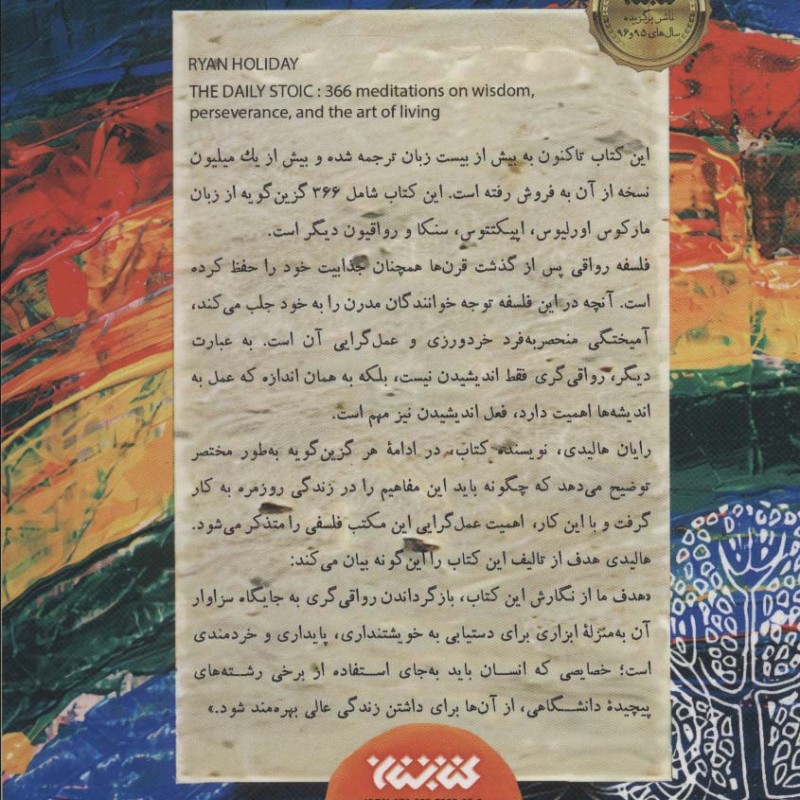 ناشر برگزیده
سال‌های ۹۵ و ۹۶
RYAN HOLIDAY
THE DAILY STOIC : 366 meditations on wisdom,
perseverance, and the art of living
این کتاب تاکنون به بیش از بیست زبان ترجمه شده و بیش از یك میلیون
نسخه از آن به فروش رفته است. این کتاب شامل ۳۶۶ گزین‌گویه از زبان
مارکوس اورلیوس، اپیکتتوس، سنکا و رواقیون دیگر است.
فلسفه رواقی پس از گذشت قرن‌ها همچنان جذابیت خود را حفظ کرده
است. آنچه در این فلسفه توجه خوانندگان مدرن را به خود جلب می‌کند،
آمیختگی منحصربه‌فرد خردورزی و عمل‌گرایی آن است. به عبارت
دیگر، رواقی‌گری فقط اندیشیدن نیست، بلکه به همان اندازه که عمل به
اندیشه‌ها اهمیت دارد، فعل اندیشیدن نیز مهم است.
رایان هالیدی، نویسنده کتاب، در ادامهٔ هر گزین‌گویه به‌طور مختصر
توضیح می‌دهد که چگونه باید این مفاهیم را در زندگی روزمره به کار
گرفت و با این کار، اهمیت عمل‌گرایی این مکتب فلسفی را متذکر می‌شود.
هالیدی هدف از تالیف این کتاب را این‌گونه بیان می‌کند:
«هدف ما از نگارش این کتاب، بازگرداندن رواقی‌گری به جایگاه سزاوار
آن به‌منزلهٔ ابزاری برای دستیابی به خویشتنداری، پایداری و خردمندی
است؛ خصایصی که انسان باید به‌جای استفاده از برخی رشته‌های
پیچیدهٔ دانشگاهی، از آن‌ها برای داشتن زندگی عالی بهره‌مند شود.»